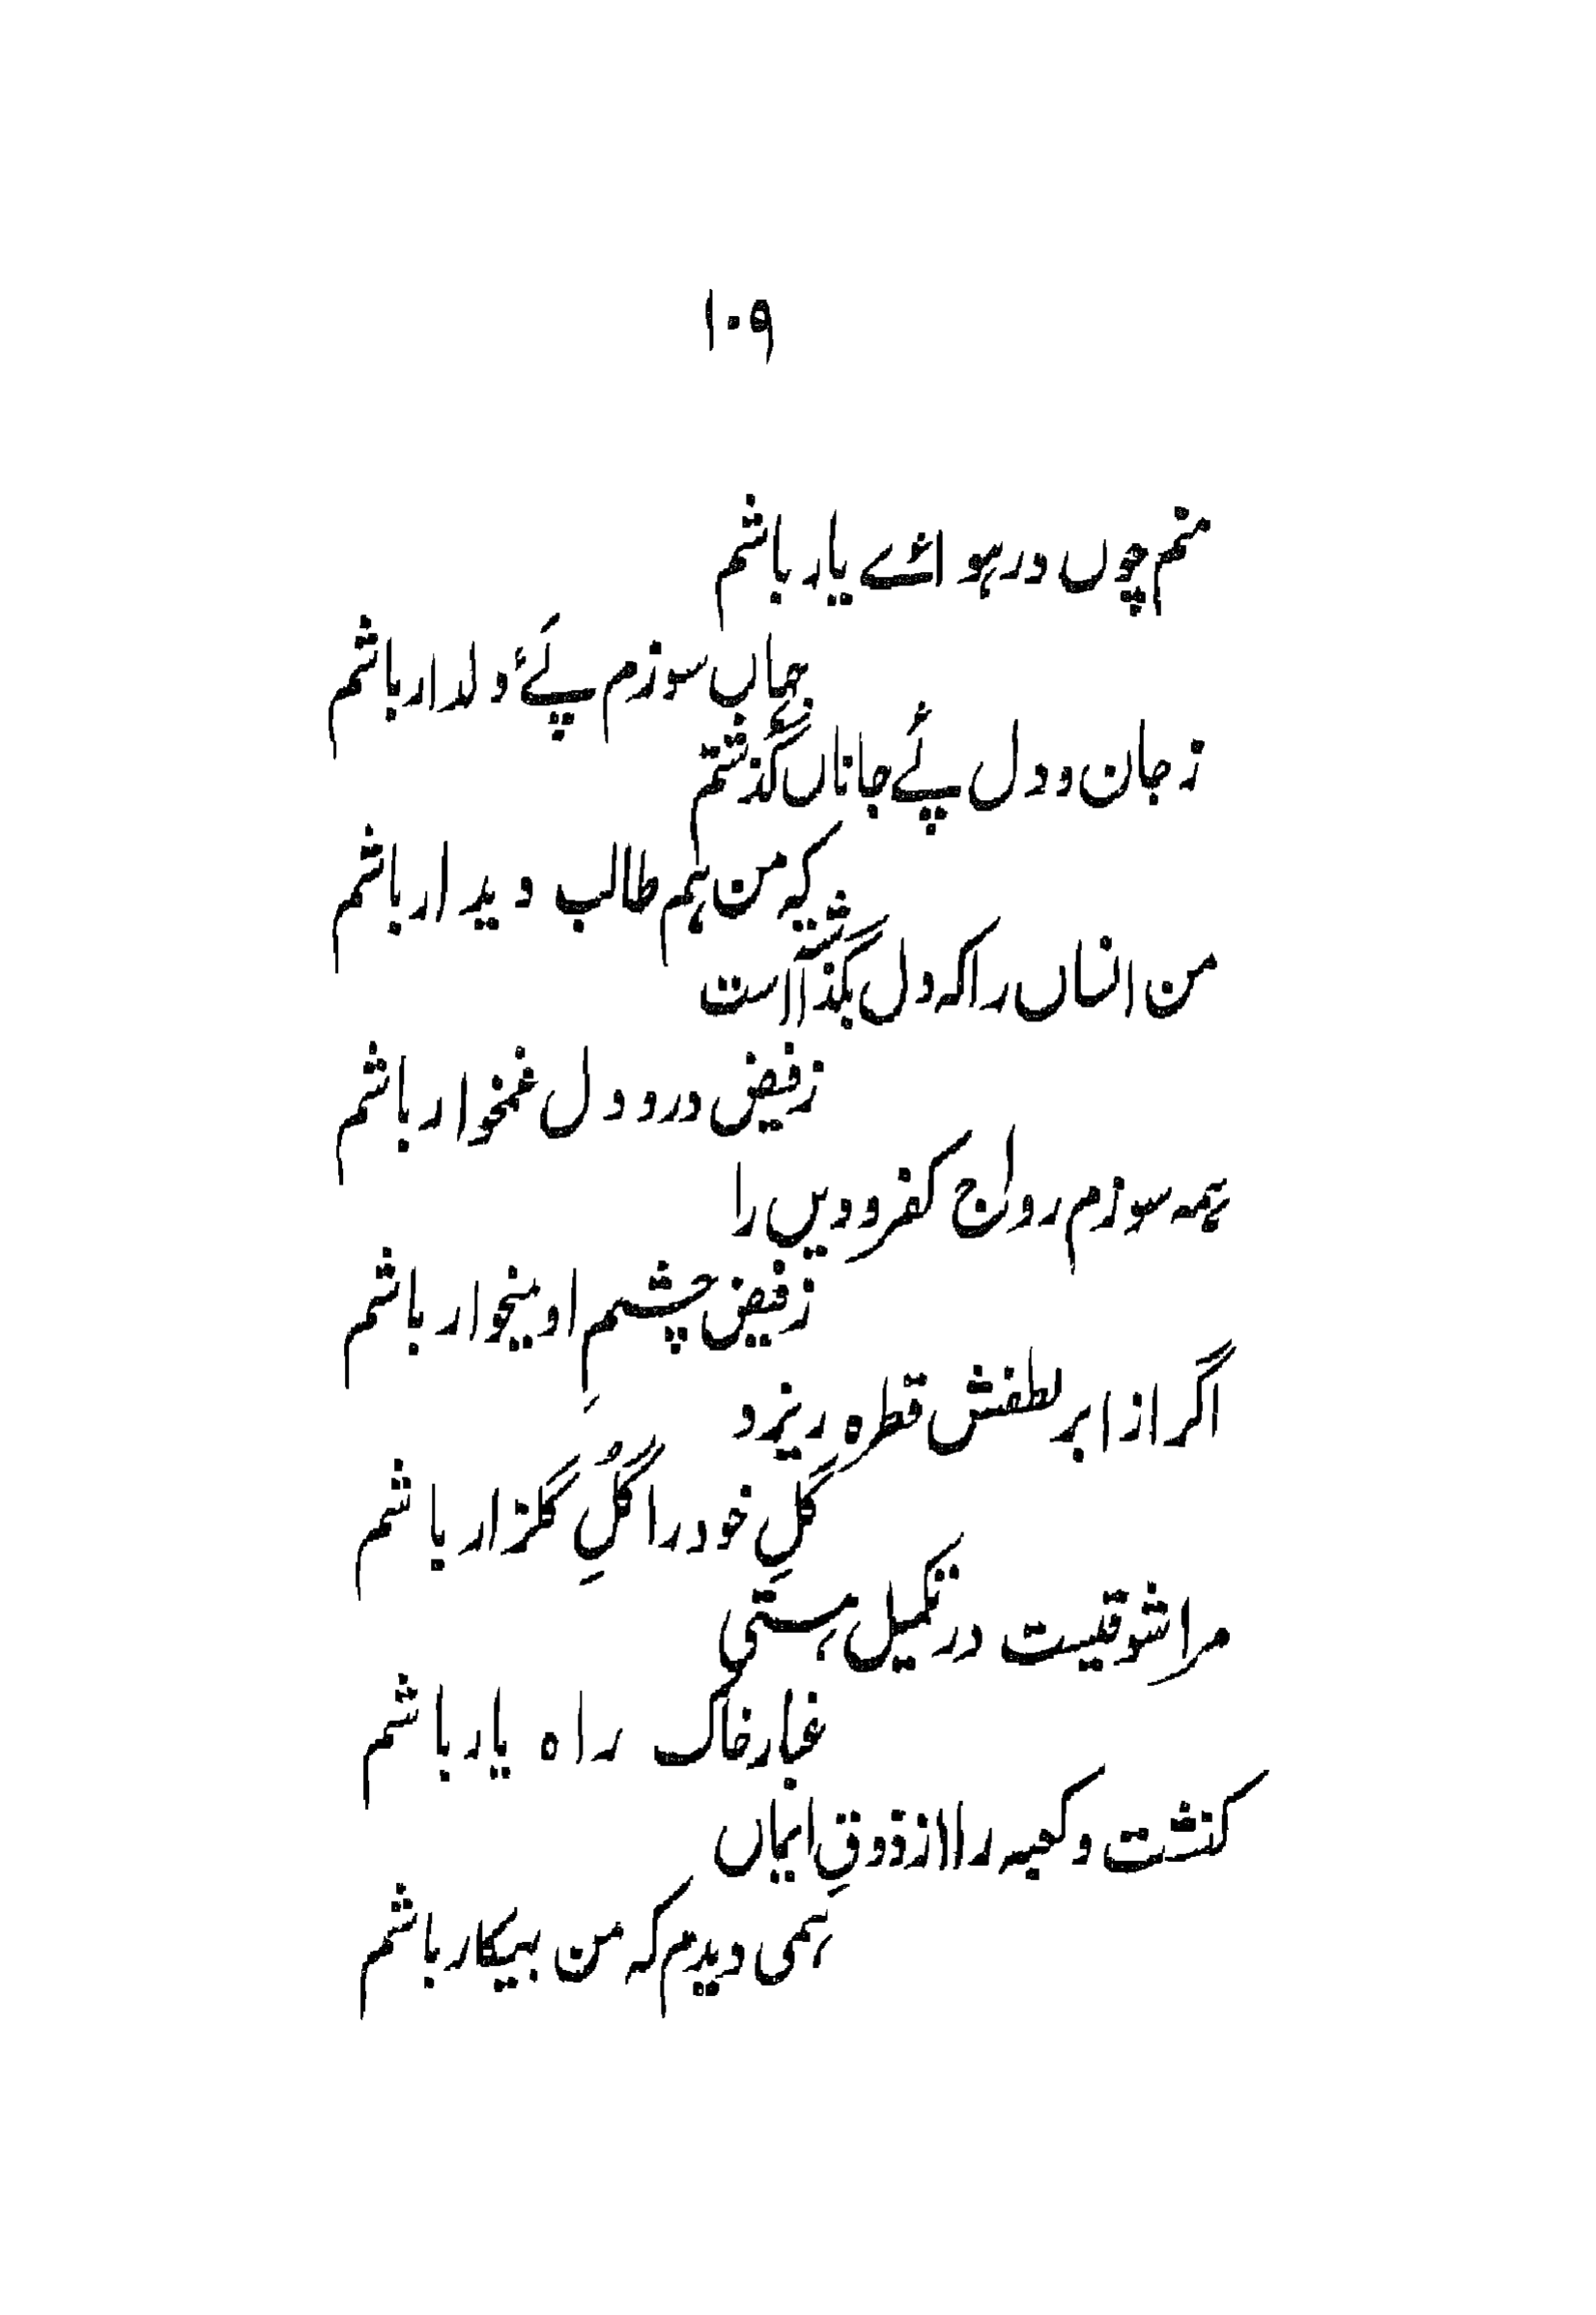 ۱۰۹
منم چوں در ہوائے یار باشم
جہاں سوزم پئے دلدار باشم
ز جان و دل پئے جاناں گذشتم
کہ من ہم طالب دیدار باشم
من انساں را کہ دل بگذاشتہ است
ز فیض درد دل غمخوار باشم
ہمہ سوزم رواج کفر و دیں را
ز فیض چشمِ او میخوار باشم
اگر از ابر لطفش قطرہ ریزد
گلِ خود را گُلِ گلزار باشم
مرا شوقیست در تکمیل ہستی
غبار خاک راہ یار باشم
کنشت و کعبہ را از ذوقِ ایماں
ہمی دیدم کہ من بیکار باشم